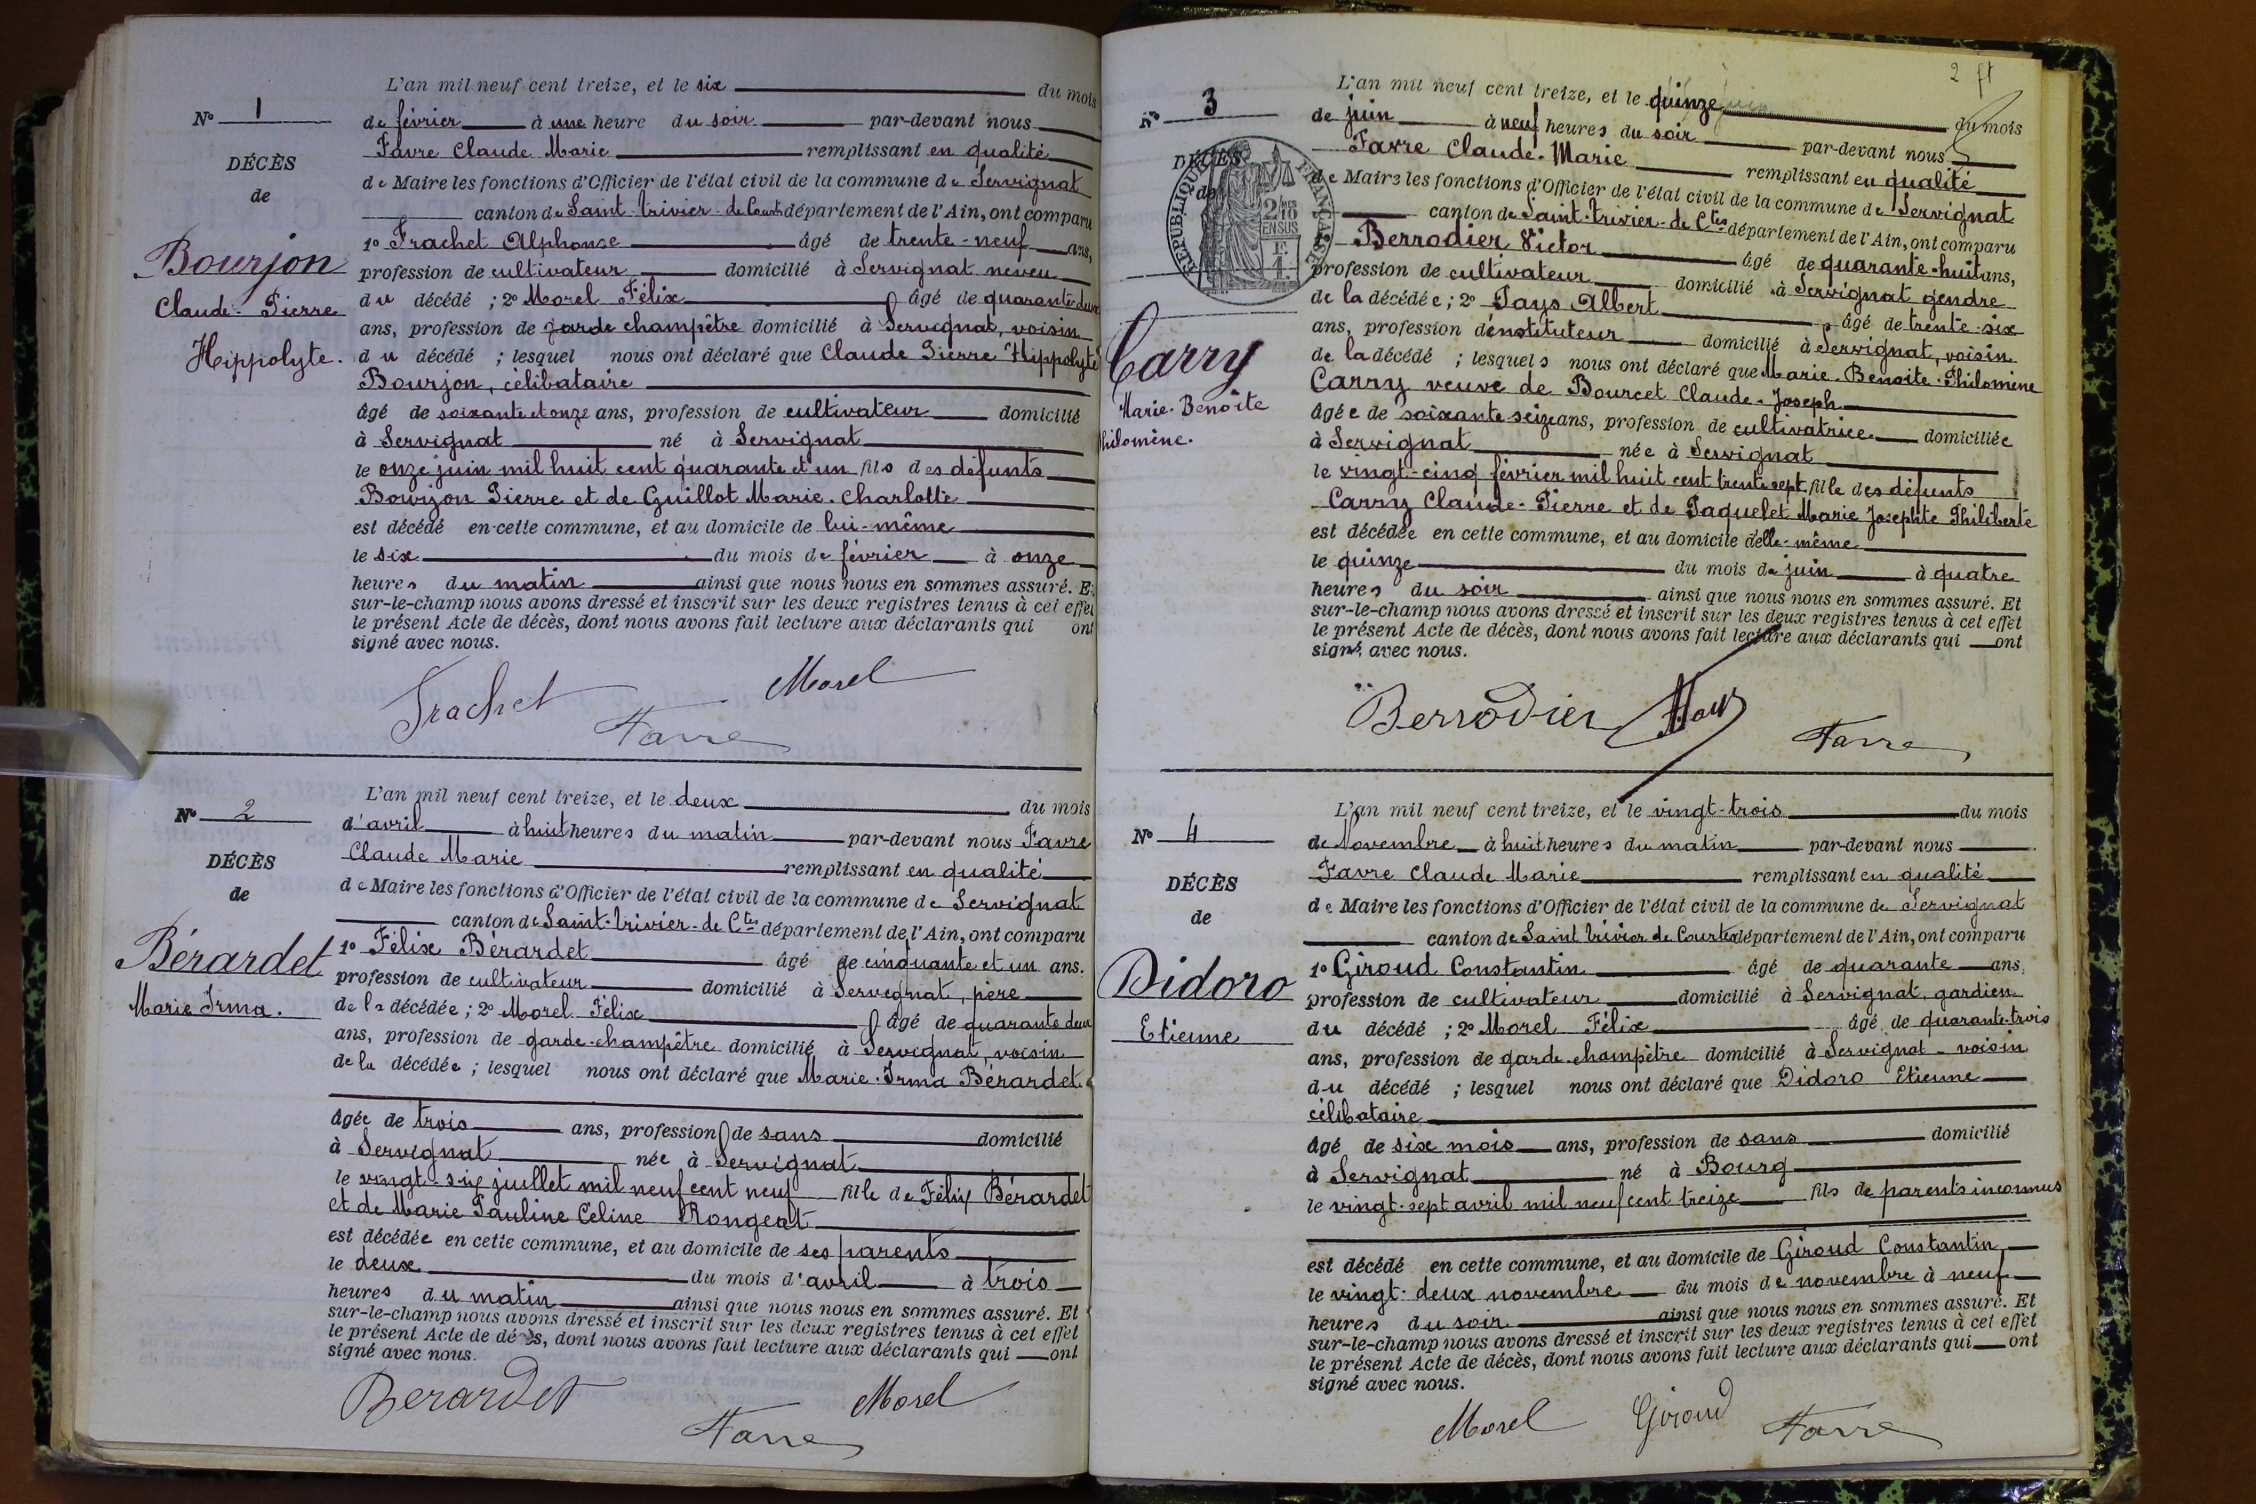 L'an mil neuf cent treize, et le six du mois
N° 1
de février à une heure du soir par-devant nous
Favre Claude Marie remplissant en qualité
DÉCÈS
de Maire les fonctions d'Officier de l'état civil de la commune de Servignat
de
canton de Saint-Trivier-de Courtes département de l'Ain, ont comparu
1° Frachet Alphonse âgé de trente-neuf ans,
Bourjon
profession de cultivateur domicilié à Servignat neveu
Claude-Pierre
du décédé ; 2° Morel Félix âgé de quarante deux
ans, profession de garde champêtre domicilié à Servignat, voisin
Hippolyte.
du décédé ; lesquel nous ont déclaré que Claude Pierre Hippolyte
Bourjon, célibataire
âgé de soixante et onze ans, profession de cultivateur domicilié
à Servignat né à Servignat
le onze juin mil huit cent quarante et un fils des défunts
Bourjon Pierre et de Guillot Marie-Charlotte
est décédé en cette commune, et au domicile de lui-même
le six du mois de février à onze
heures du matin ainsi que nous nous en sommes assuré. Et
sur-le-champ nous avons dressé et inscrit sur les deux registres tenus à cet effet
le présent Acte de décès, dont nous avons fait lecture aux déclarants qui ont
signé avec nous.
Frachet Favre Morel
L'an mil neuf cent treize, et le deux du mois
N° 2
d'avril à huit heures du matin par-devant nous Favre
Claude Marie remplissant en qualité
DÉCÈS
de Maire les fonctions d'Officier de l'état civil de la commune de Servignat
de
canton de Saint-Trivier-de Ctes département de l'Ain, ont comparu
Bérardet
1° Félix Bérardet âgé de cinquante et un ans.
profession de cultivateur domicilié à Servignat, père
Marie Irma.
de la décédée ; 2° Morel Félix âgé de quarante deux
ans, profession de garde-champêtre domicilié à Servignat, voisin
de la décédée ; lesquel nous ont déclaré que Marie-Irma Bérardet
âgée de trois ans, profession de sans domicilié
à Servignat née à Servignat
le vingt-six juillet mil neuf cent neuf fille de Félix Bérardet
et de Marie Pauline Celine Rongeat
est décédée en cette commune, et au domicile de ses parents
le deux du mois d'avril à trois
heures du matin ainsi que nous nous en sommes assuré. Et
sur-le-champ nous avons dressé et inscrit sur les deux registres tenus à cet effet
le présent Acte de décès, dont nous avons fait lecture aux déclarants qui ont
signé avec nous.
Berardet Favre Morel
2 ft
L'an mil neuf cent treize, et le quinze du mois
N° 3
de juin à neuf heures du soir par-devant nous
Favre Claude-Marie remplissant en qualité
DÉCÈS
de Maire les fonctions d'Officier de l'état civil de la commune de Servignat
de
RÉPUBLIQUE FRANÇAISE
2/10 EN SUS
canton de Saint-Trivier-de Ctes département de l'Ain, ont comparu
Berrodier Victor âgé de quarante-huit ans,
profession de cultivateur domicilié à Servignat gendre
de la décédée ; 2° Pays Albert âgé de trente-six
ans, profession d'instituteur domicilié à Servignat, voisin
Carry
de la décédé ; lesquels nous ont déclaré que Marie-Benoite-Philomène
Carry veuve de Bourcet Claude-Joseph
Marie-Benoîte
âgée de soixante seize ans, profession de cultivatrice domiciliée
hilomène.
à Servignat née à Servignat
le vingt-cinq février mil huit cent trente sept fille des défunts
Carry Claude-Pierre et de Paquelet Marie Josephte Philiberte
est décédée en cette commune, et au domicile d'elle-même
le quinze du mois de juin à quatre
heures du soir ainsi que nous nous en sommes assuré. Et
sur-le-champ nous avons dressé et inscrit sur les deux registres tenus à cet effet
le présent Acte de décès, dont nous avons fait lecture aux déclarants qui ont
signé avec nous.
Berrodier Favre
L'an mil neuf cent treize, et le vingt-trois du mois
N° 4
de Novembre à huit heures du matin par-devant nous
Favre Claude Marie remplissant en qualité
DÉCÈS
de Maire les fonctions d'Officier de l'état civil de la commune de Servignat
de
canton de Saint Trivier de Courtes département de l'Ain, ont comparu
Didoro
1° Giroud Constantin âgé de quarante ans,
profession de cultivateur domicilié à Servignat, gardien
Etienne
du décédé ; 2° Morel Félix âgé de quarante-trois
ans, profession de garde-champêtre domicilié à Servignat - voisin
du décédé ; lesquel nous ont déclaré que Didoro Etienne
célibataire
âgé de six mois ans, profession de sans domicilié
à Servignat né à Bourg
le vingt-sept avril mil neuf cent treize fils de parents inconnus
est décédé en cette commune, et au domicile de Giroud Constantin
le vingt-deux novembre du mois de novembre à neuf
heures du soir ainsi que nous nous en sommes assuré. Et
sur-le-champ nous avons dressé et inscrit sur les deux registres tenus à cet effet
le présent Acte de décès, dont nous avons fait lecture aux déclarants qui ont
signé avec nous.
Morel Giroud Favre